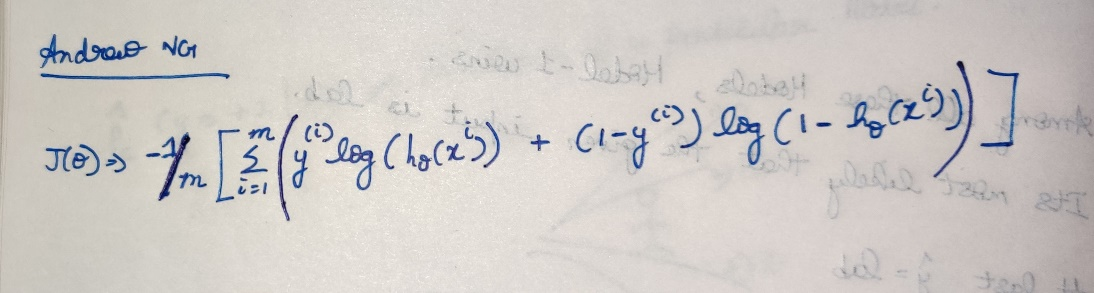 Andrew NG
J(θ) => -1/m [ Σ_{i=1}^{m} ( y^{(i)} log (h_θ(x^{i)})) + (1-y^{(i)}) log (1 - h_θ(x^{i)})) ) ]